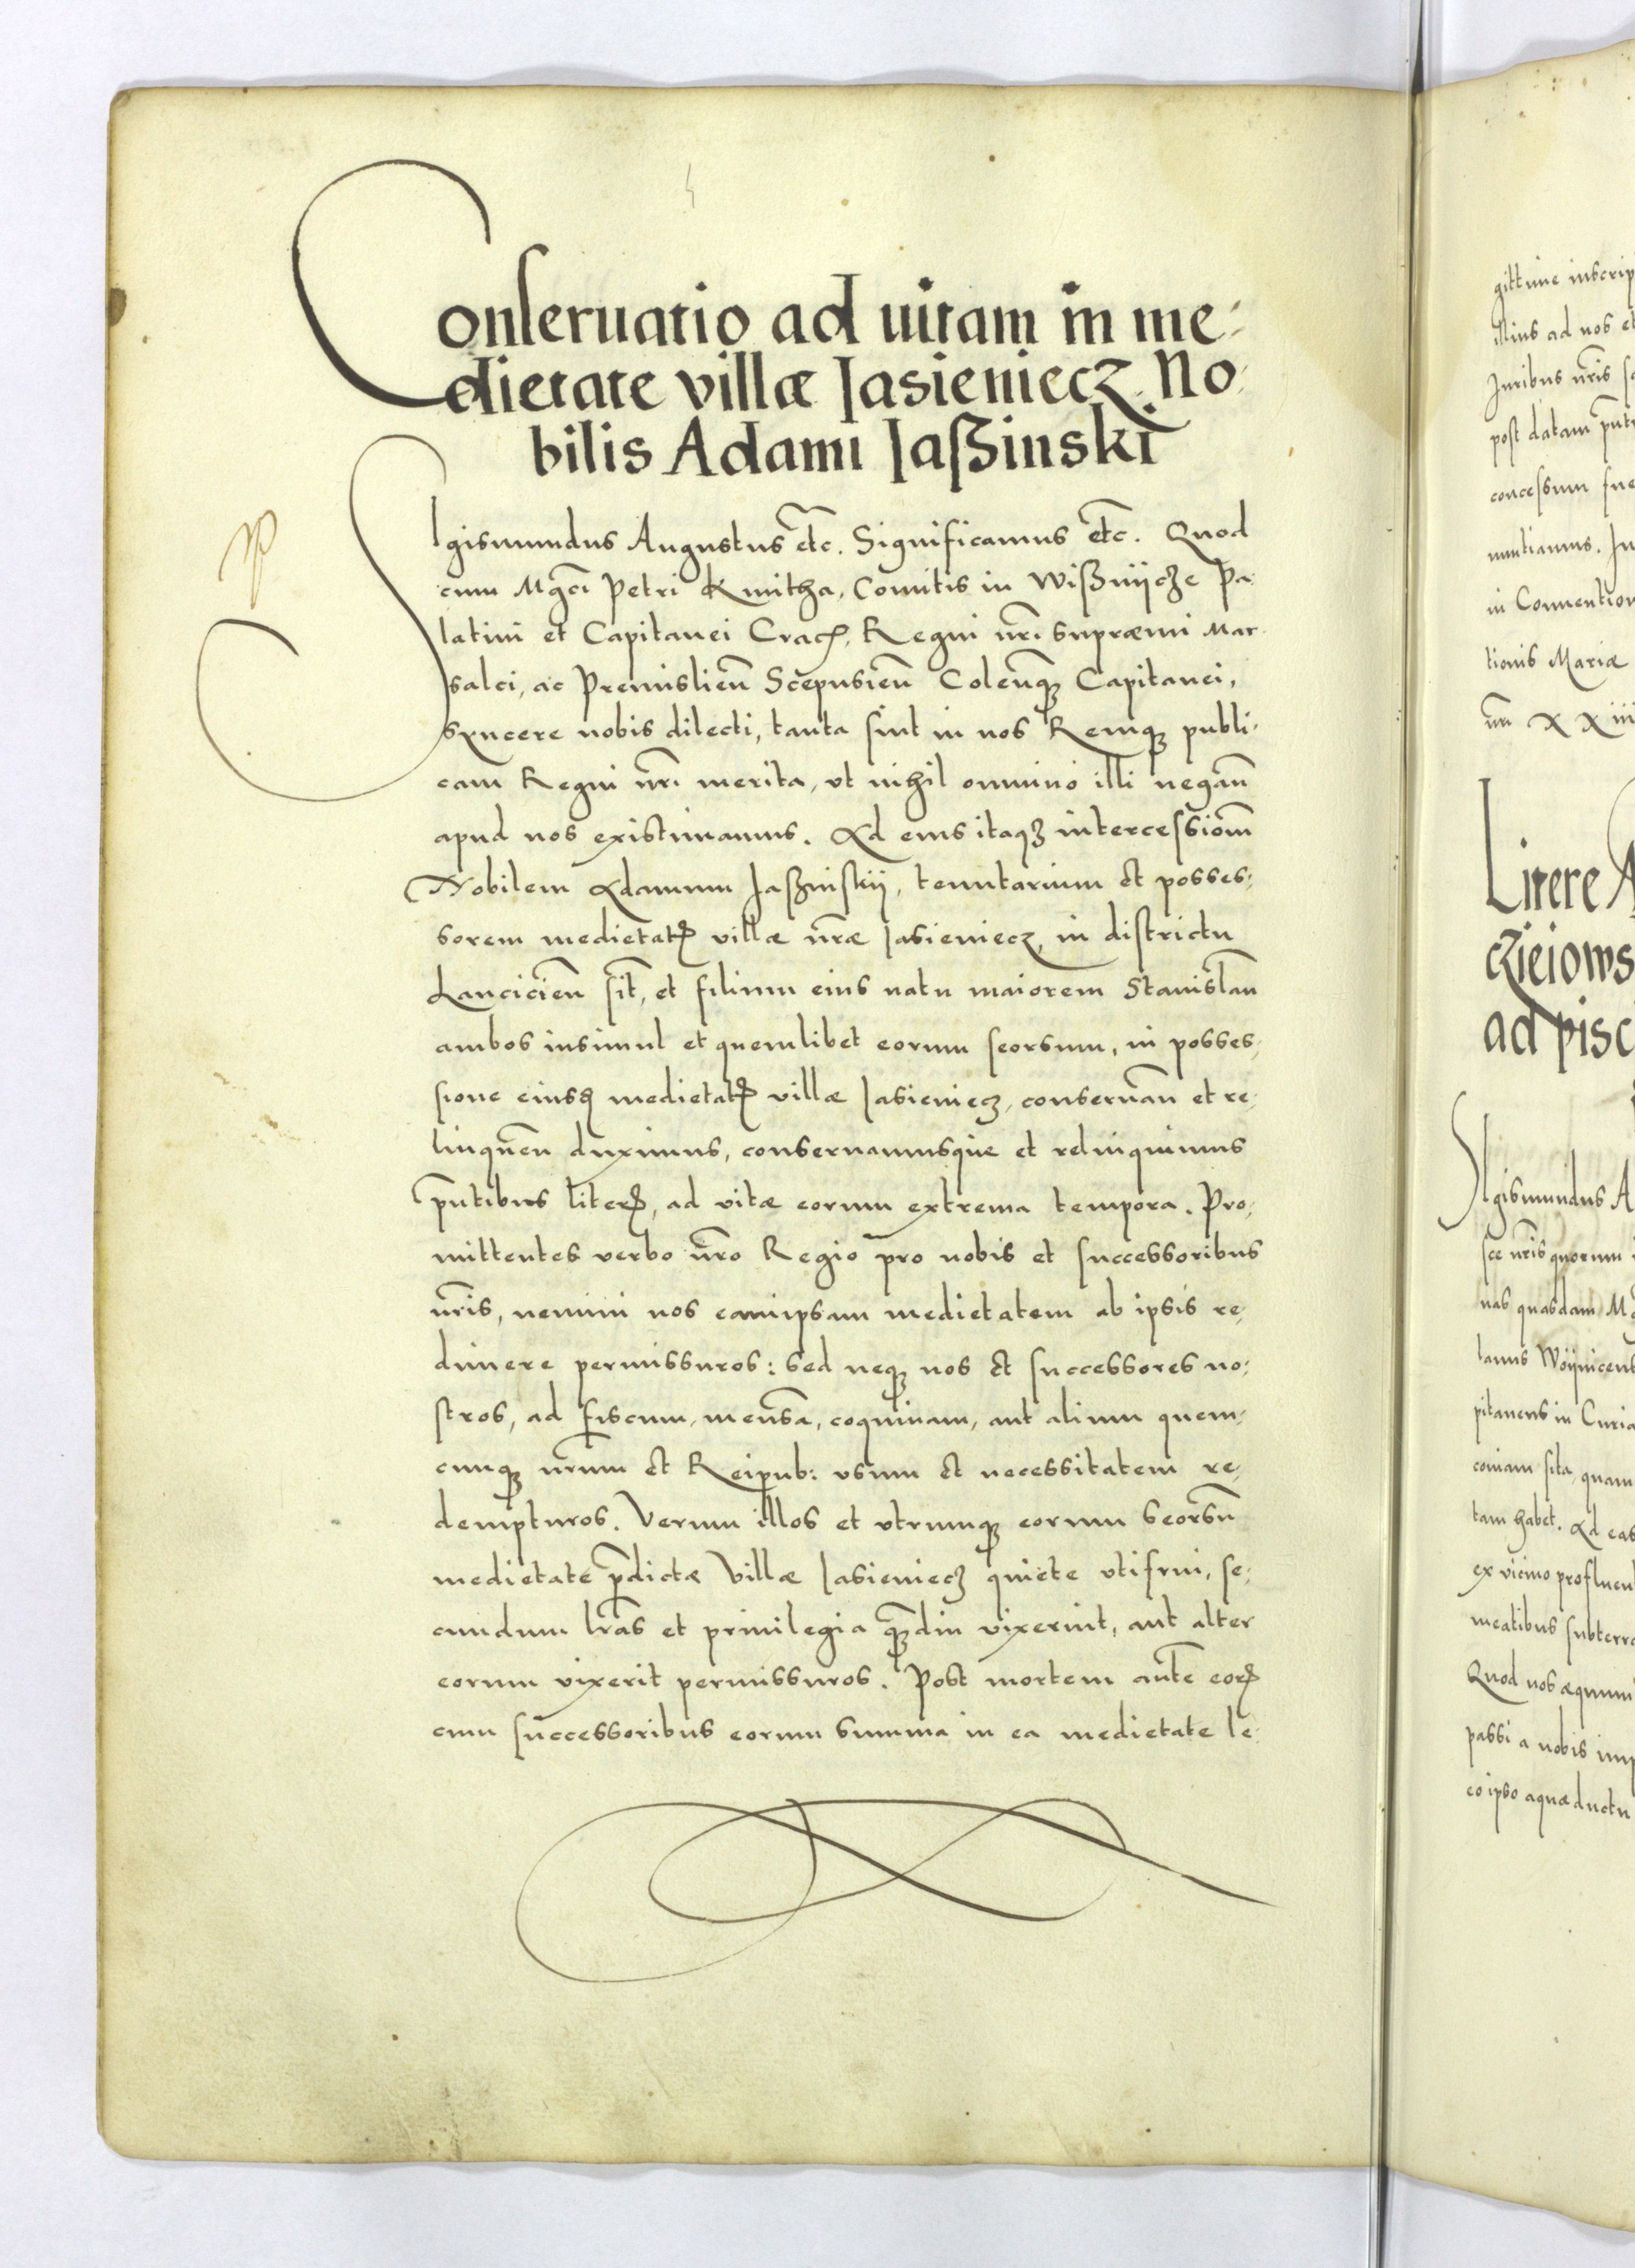 Conseruatio ad uitam in me-
dietate villæ Jasieniecz No-
bilis Adami Jaßinski
Sigismundus Augustus etc. Significamus etc. Quod
cum Mgcı Petri Kmitha, Comitis in Wißnijcze Pa-
latini et Capitanei Crac, Regni nrı supræmi Mar-
salci, ac Premislien̄ Scepusien̄ Colenq Capitanei,
syncere nobis dilecti, tanta sint in nos Remq publi-
cam Regni nrı merita, vt nihil omnino illi negan̄
apud nos existimamus. Ad eius itaqꝫ intercessiom̄
Nobilem Adamum Jaßinskij, tenutarium et posses-
sorem medietatꝭ villæ nr̄æ Jasieniecz, in districtu
Lancicien̄ sit̄, et filium eius natu maiorem Stanislau̅
ambos insimul et quemlibet eorum seorsum, in posses-
sione eiusd medietatꝭ villæ Jasieniecz, conseruan̄ et re-
linquen̄ duximus, conseruamusque et relinquimus
pn̄tibus literꝭ, ad vitæ eorum extrema tempora. Pro-
mittentes verbo nr̄o Regio pro nobis et successoribus
nr̄is, nemini nos eamipsam medietatem ab ipsis re-
dimere permissuros: sed neqꝫ nos et successores no-
stros, ad fiscum, mensa̅, coquinam, aut alium quem-
cunqꝫ nr̄um et Reipub: vsum et necessitatem re-
dempturos. Verum illos et vtrumqꝫ eorum seorsu̅
medietate p̄dictæ Villæ Jasieniecz quiete vtifrui, se-
cundum lr̄as et priuilegia qꝫdiu vixerint, aut alter
eorum vixerit permissuros. Post mortem aute̅ eorꝭ
cum successoribus eorum summa in ea medietate le-
gittime inscrip
illius ad nos et
Juribus nr̄is
post datam
concessum fue
nuntiamus. In
in Conuention
tionis Mariæ
XXiii
Litere A
cziejows
ad pisc
Sigismundus A
sce nr̄is quorum
nas quasdam
lanus Woijnicens
pitaneus in Curia
coniam sita, quam
tam habet. Ad eas
ex vicino profluen
meatibus subterra
Quod nos æquum
passi a nobis imp
eo ipso aquæductu